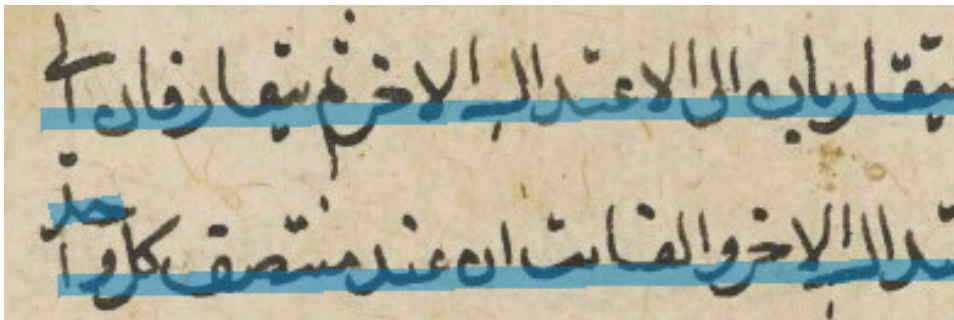 يتقاربان الى الاعتدال الاخر ثم يتفارقان الى
تدال الاخر والغايتان عند منتصف كل واحد